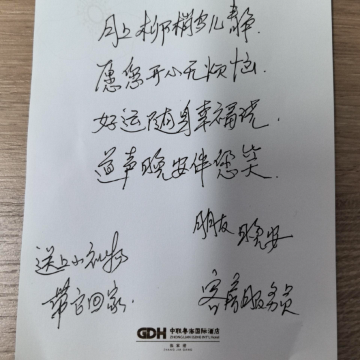 月上柳梢鸟儿静.
愿您开心无烦恼.
好运随身幸福绕.
道声晚安伴您笑.
朋友晚安
送上小礼物
带它回家.
客房服务员
GDH 中联粤海国际酒店